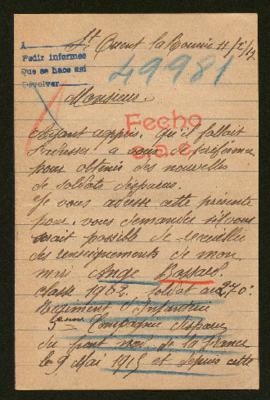 A
Pedir informes
Que se hace así
Devolver
St Ouent la Rouërie 11/5/17
49981
Monsieur.
Fecho
ayant appris, qu'il fallait
s'adresser à vous de préférence
pour obtenir des nouvelles
de soldats disparus.
Je vous adresse cette présente
pour vous demander s'il vous
serait possible de recueillir
des renseignements de mon
mari Ange Bossard
classe 1902 soldat au 270e
Régiment d'Infanterie
5eme Compagnie disparu
du front de la france
le 9 Mai 1915 et depuis cette